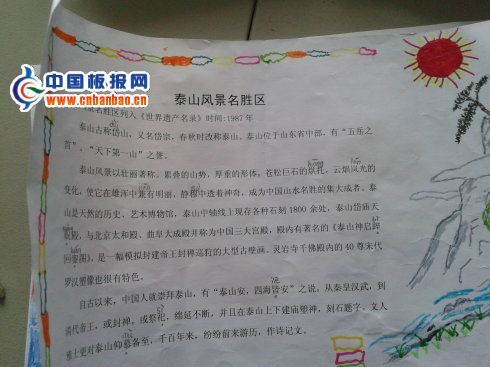 中国板报网
www.cnbanbao.cn
泰山风景名胜区
名胜区列入《世界遗产名录》时间:1987年
泰山古称岱山，又名岱宗，春秋时改称泰山。泰山位于山东省中部，有“五岳之
首”、“天下第一山”之誉。
泰山风景以壮丽著称。累叠的山势，厚重的形体，苍松巨石的烘托，云烟岚光的
变化，使它在雄浑中兼有明丽，静穆中透着神奇，成为中国山水名胜的集大成者。泰
山是天然的历史、艺术博物馆，泰山中轴线上现存各种石刻1800余处，泰山岱庙天
贶殿，与北京太和殿、曲阜大成殿并称为中国三大宫殿，殿内有著名的《泰山神启跸
回銮图》，是一幅模拟封建帝王封禅巡狩的大型古壁画。灵岩寺千佛殿内的40尊宋代
罗汉塑像也很有特色。
自古以来，中国人就崇拜泰山，有“泰山安，四海皆安”之说。从秦皇汉武，到
清代帝王，或封禅，或祭祀，绵延不断，并且在泰山上下建庙塑神，刻石题字。文人
雅士更对泰山仰慕备至，千百年来，纷纷前来游历，作诗记文。